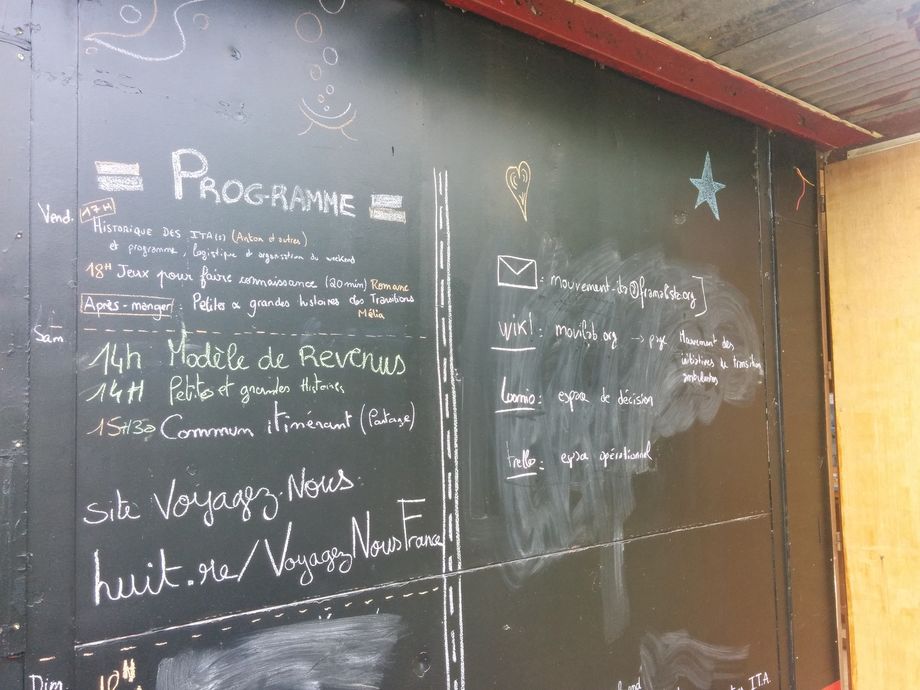 = PROGRAMME =
Vend. 17H
HISTORIQUE DES ITA(s) (Anton et autres)
et programme, logistique et organisation du weekend
18H Jeux pour faire connaissance (20min) Romane
Après-manger : Petites & grandes histoires des Transitions
Mélia
Sam
14h Modèle de Revenus
14H Petites et grandes Histoires
15H30 Commun itinérant (Partage)
site Voyagez-Nous
huit.re/VoyagezNousFrance
Dim. 10H
: mouvement-ita@framaliste.org
wiki : movilab.org → page Mouvement des
initiatives de transition
ambulantes
Loomio : espace de décision
trello : espace opérationnel
I.T.A.